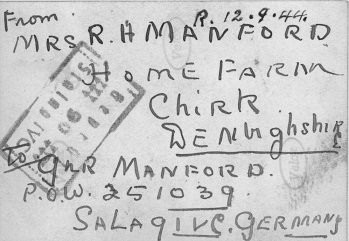 From R. 12.9.44.
MRS. R. H MANFORD
HOME FARM
Chirk
DENbighshire
To GNR MANFORD.
P.O.W. 251039
STALAG IVC. GERMANY